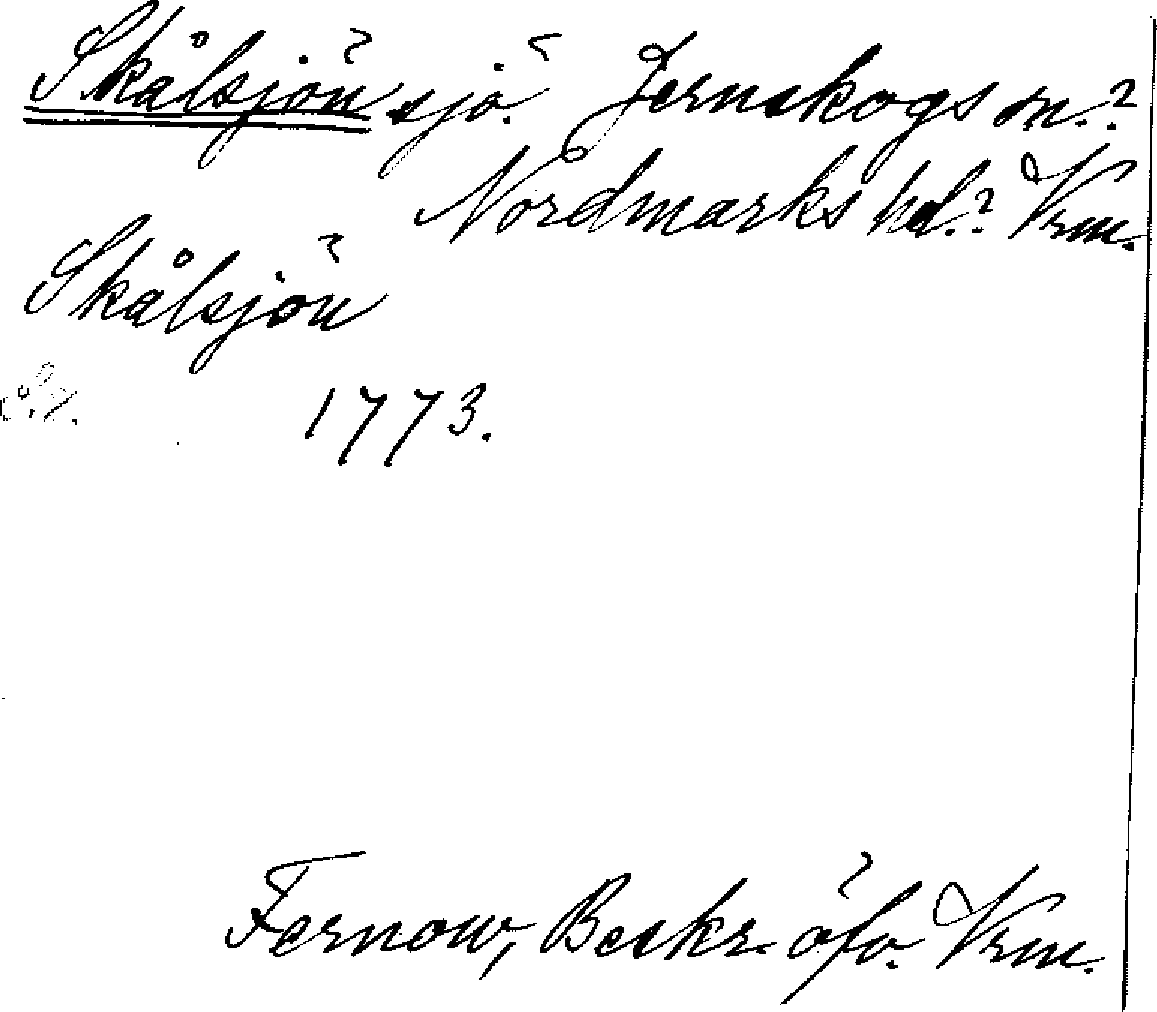 Skålsjön sjö. Jernskogs sn.?
Nordmarks hd.? Vrm.
Skålsjön
1773.
Fernow, Beskr. öfv. Vrm.